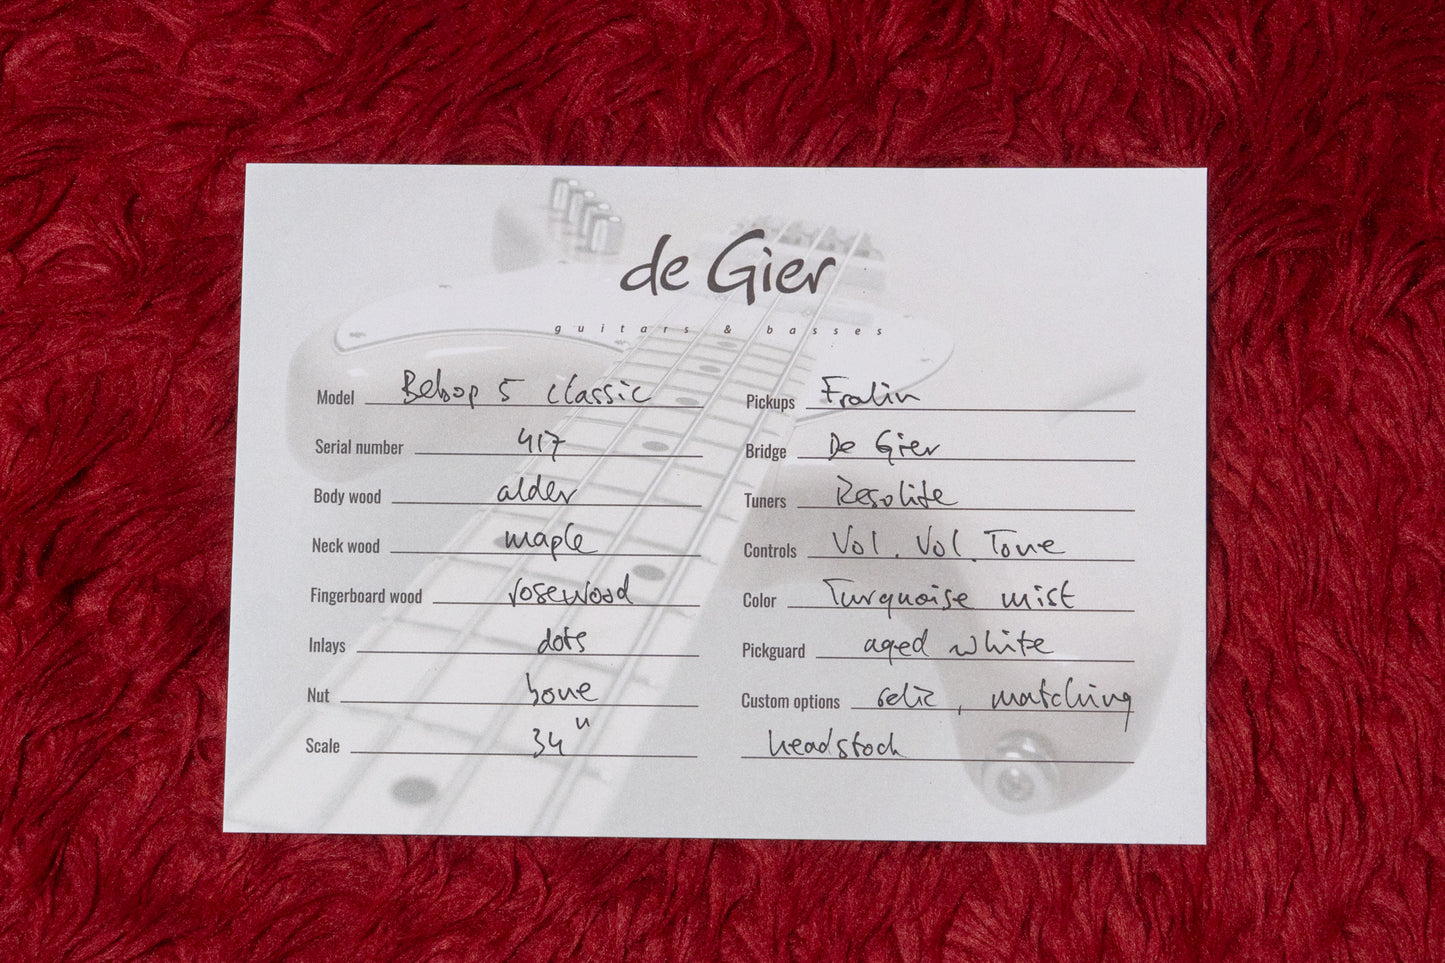 de Gier
guitars & basses
Model Bebop 5 classic
Serial number 417
Body wood alder
Neck wood maple
Fingerboard wood rosewood
Inlays dots
Nut bone
Scale 34"
Pickups Fralin
Bridge De Gier
Tuners Resolite
Controls Vol. Vol. Tone
Color Turquoise mist
Pickguard aged white
Custom options relic, matching
headstock